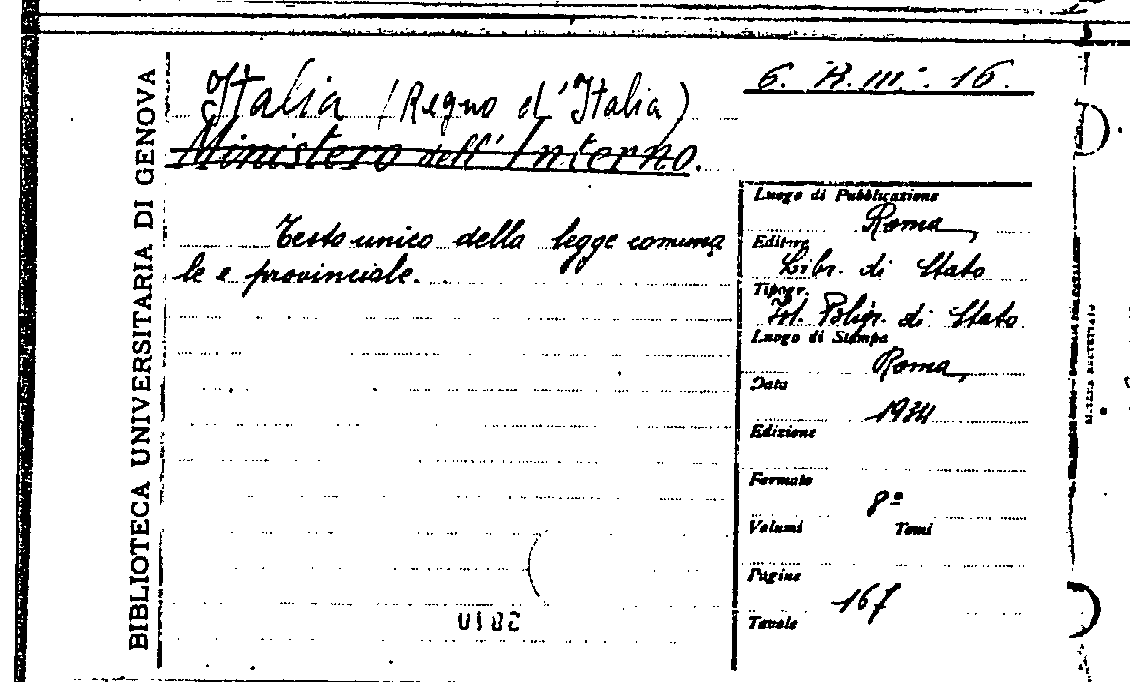 BIBLIOTECA UNIVERSITARIA DI GENOVA
6. R.m. 16.
Italia (Regno d'Italia)
Ministero dell'Interno.
Testo unico della legge comuna
le e provinciale.
Luogo di Pubblicazione
Roma,
Editore
Libr. di Stato
Tipogr.
Ist. Poligr. di Stato
Luogo di Stampa
Roma,
Data
1934
Edizione
Formato
8º
Volumi Tomi
Pagine
167
Tavole